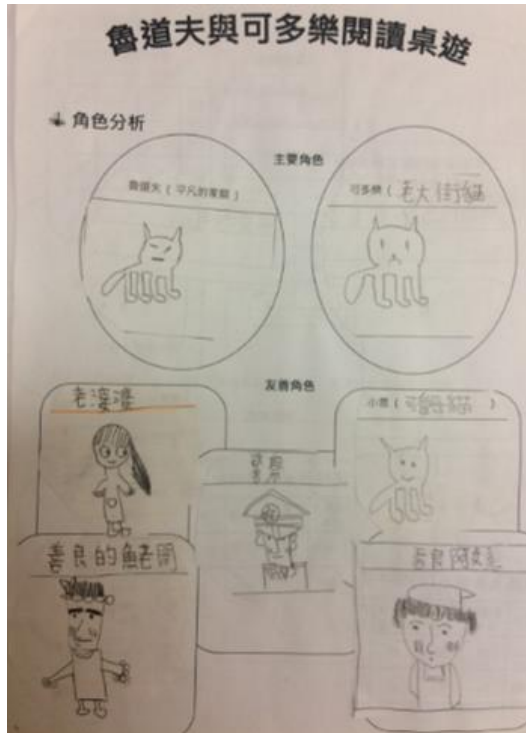 魯道夫與可多樂閱讀桌遊
角色分析
主要角色
魯道夫 ( 平凡的家貓 )
可多樂 ( 老大街貓
友善角色
老婆婆
小雪 ( 母貓 )
善良的魚老闆
善良阿